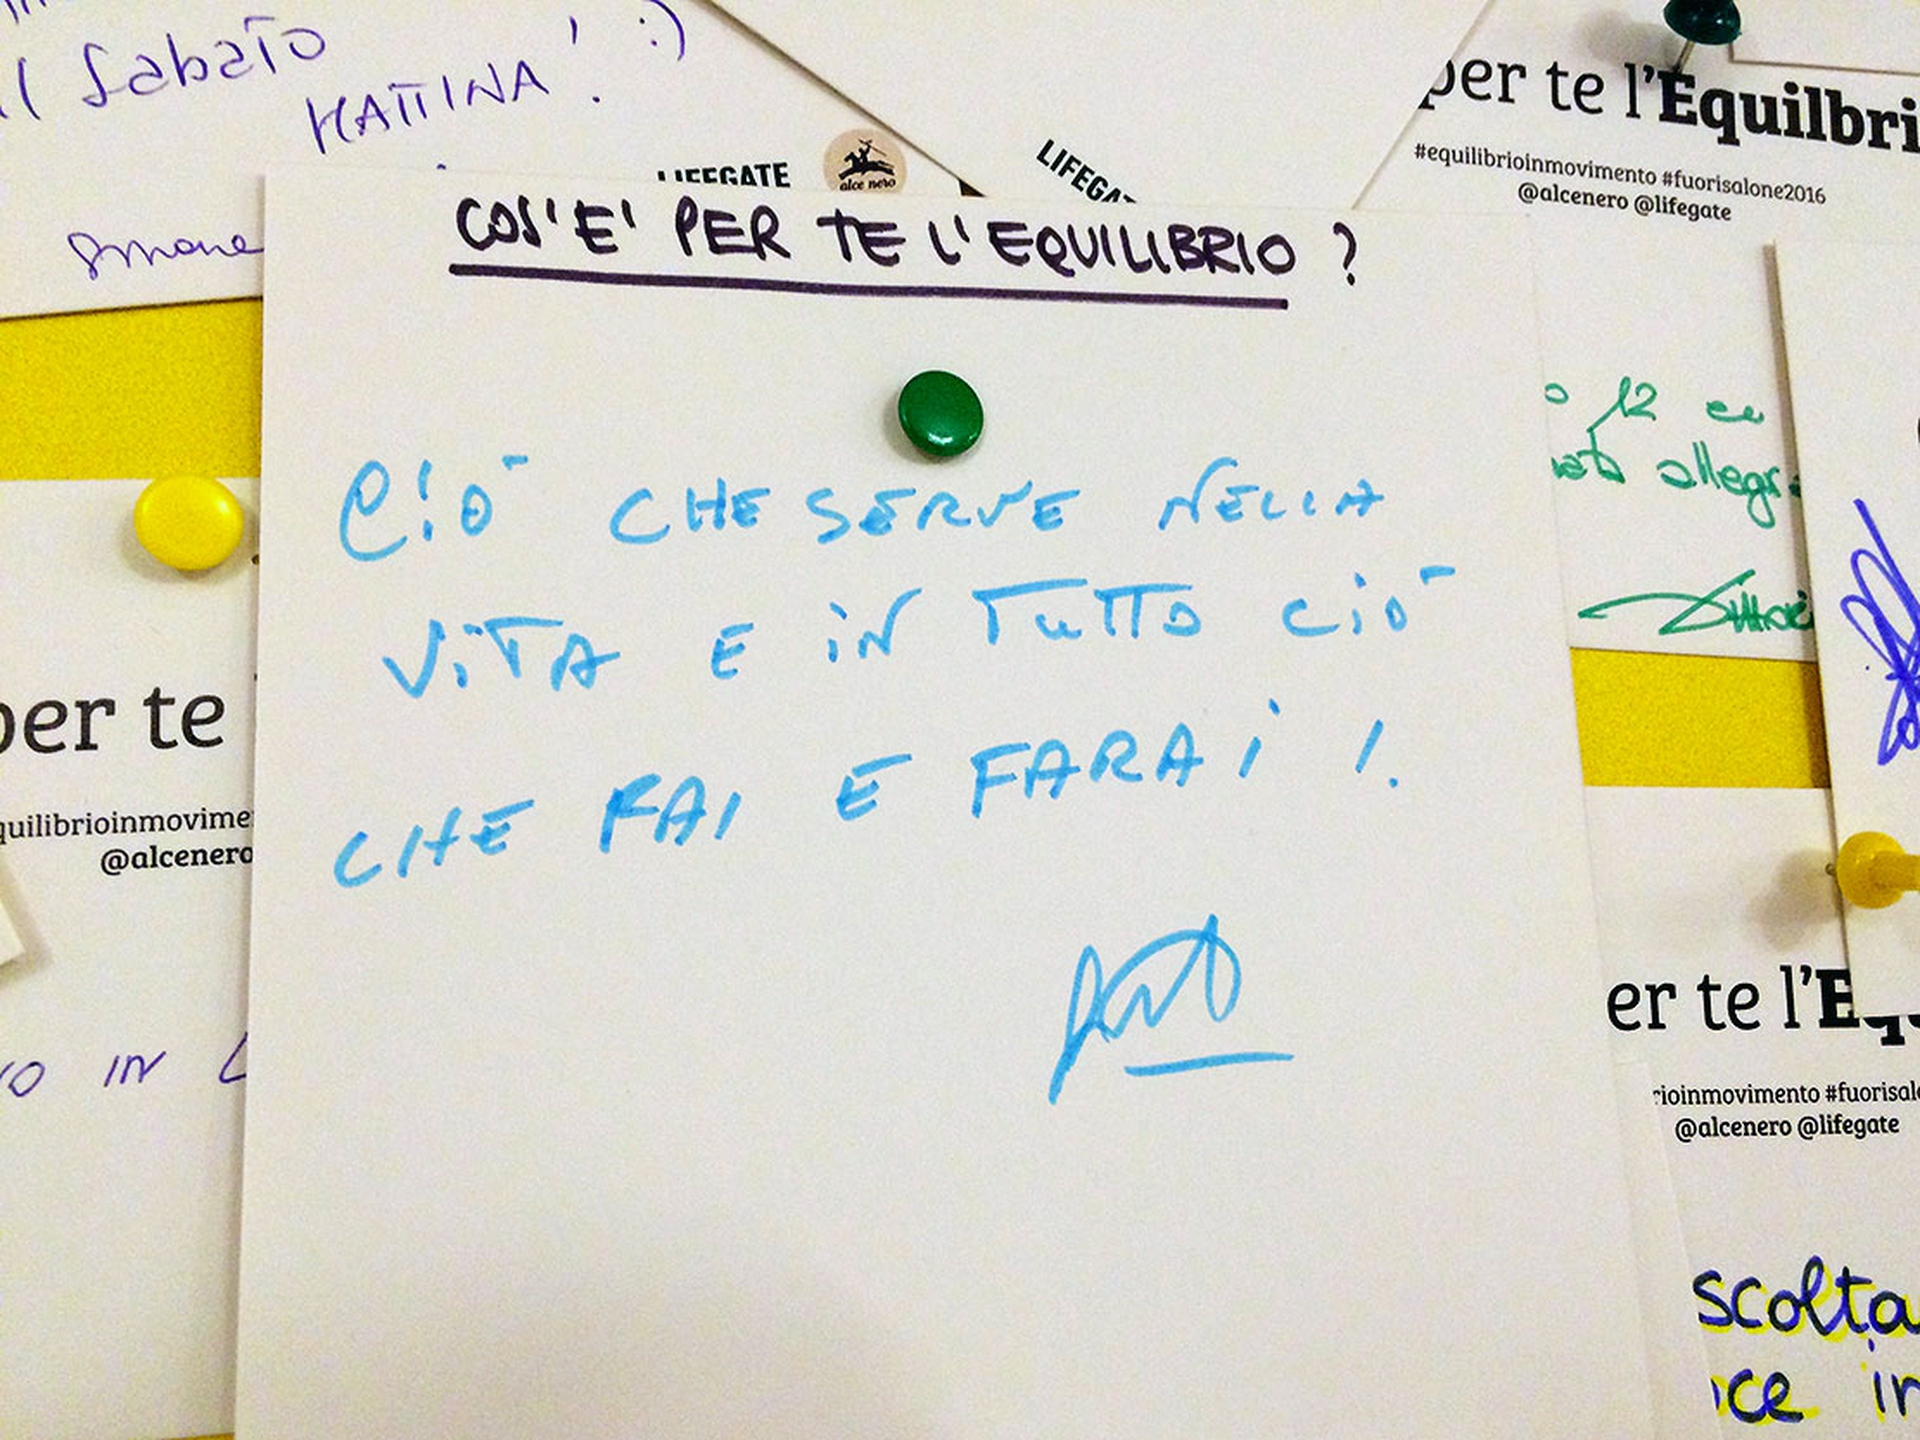 il Sabato
MATTINA! :)
Simone
LIFEGATE
alce nero
LIFEGAT
per te l'Equilbri
#equilibrioinmovimento #fuorisalone2016
@alcenero @lifegate
COS'E' PER TE L'EQUILIBRIO ?
CIÒ CHE SERVE NELLA
VITA E IN TUTTO CIÒ
CHE FAI E FARAI !
12
allegr
per te
quilibrioinmovime
@alcenero
IN L
er te l'Equ
rioinmovimento #fuorisalo
@alcenero @lifegate
scolta
ce in